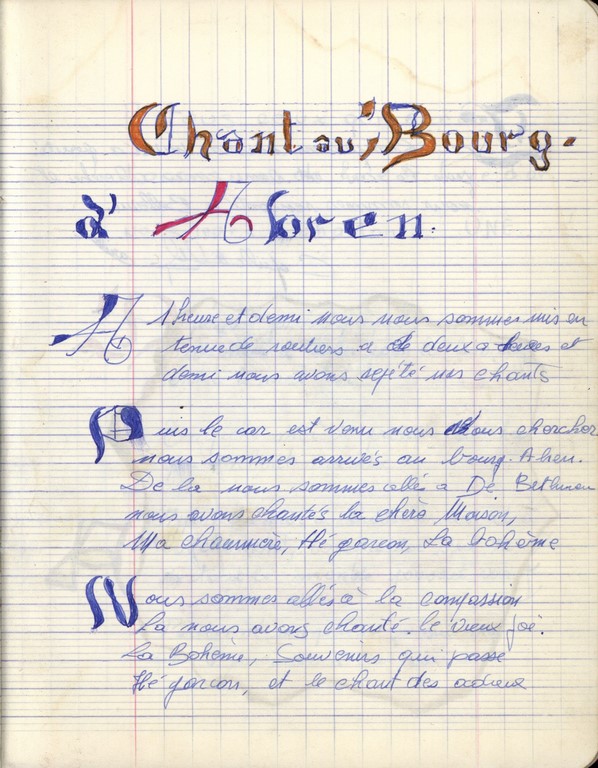 Chant au Bourg.
d'Aloren.
A 1 heure et demi nous nous sommes mis en
tenue de routiers a deux a et
demi nous avons répété nos chants
Puis le car est venu nous chercher
nous sommes arrivés au bourg. A
De la nous sommes allés a De Bethman
nous avons chantés la chère Maison,
Ma chaumière, Hé garcon, La bohème
Nous sommes allés à la compassion
La nous avons chanté. le vieux joé.
La Bohème, Souvenirs qui passe
Hé garcon, et le chant des adieux